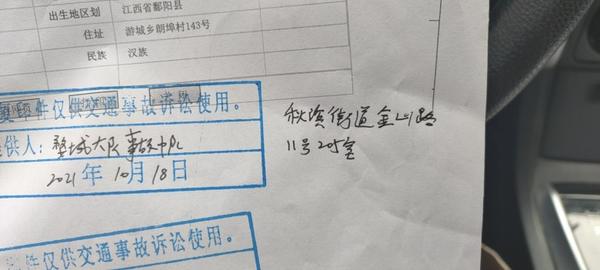 出生地区划 江西省鄱阳县
住址 游城乡朗埠村143号
民族 汉族
复印件仅供交通事故诉讼使用。
提供人：婺城大队事故中队
2021年10月18日
秋滨街道金山路
11号
件仅供交通事故诉讼使用。